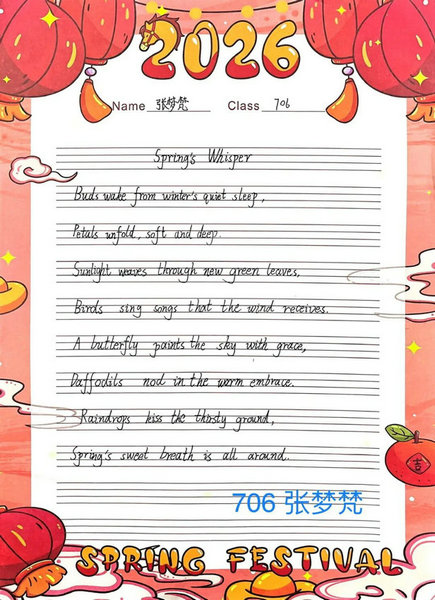 2026
Name 张梦梵 Class 706
Spring's Whisper
Buds wake from winter's quiet sleep,
Petals unfold, soft and deep.
Sunlight weaves through new green leaves,
Birds sing songs that the wind receives.
A butterfly paints the sky with grace,
Daffodils nod in the warm embrace.
Raindrops kiss the thirsty ground,
Spring's sweet breath is all around.
706 张梦梵
吉
SPRING FESTIVAL